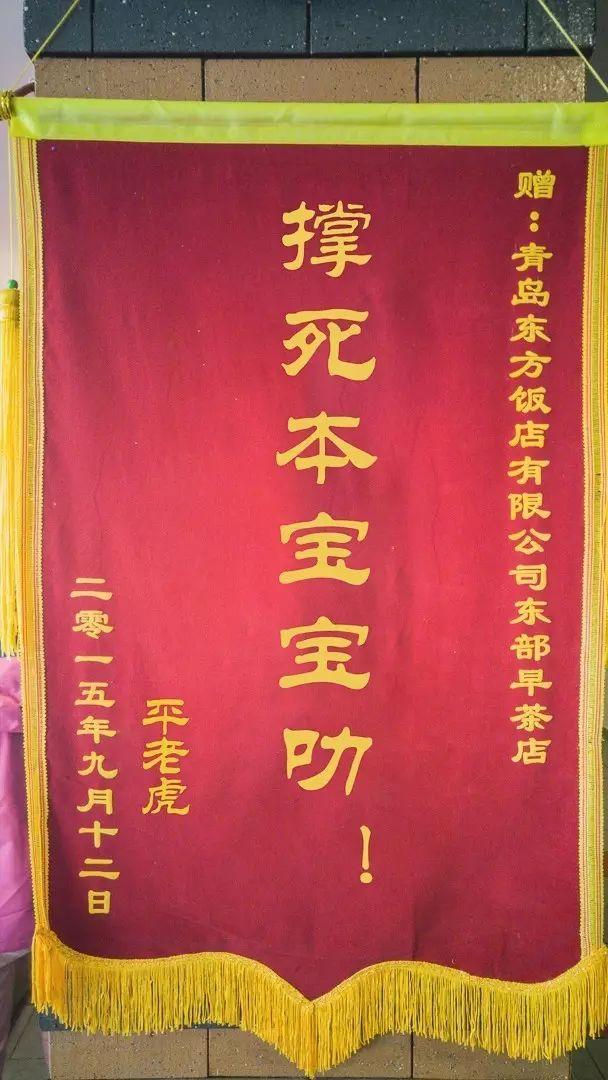 赠：青岛东方饭店有限公司东部早茶店
撑死本宝宝叻！
平老虎
二零一五年九月十二日